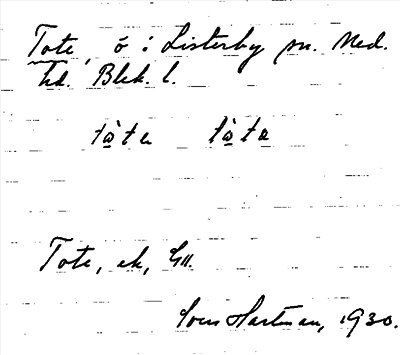 Tote, ö i Listerby sn. Med.
hd. Blek. l.
tò̲te tò̲ta
Tote, ek, GK.
Sven Hartman, 1930.